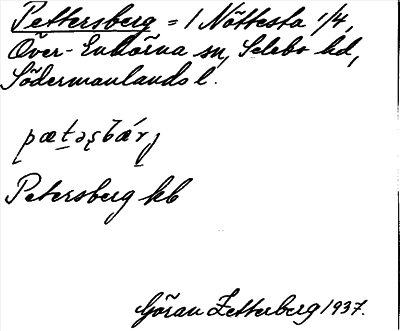 Pettersberg = 1 Nöttesta 1/4,
Över-Enhörna sn, Selebo hd,
Södermanlands l.
Petersberg kb
Göran Zetterberg 1937.